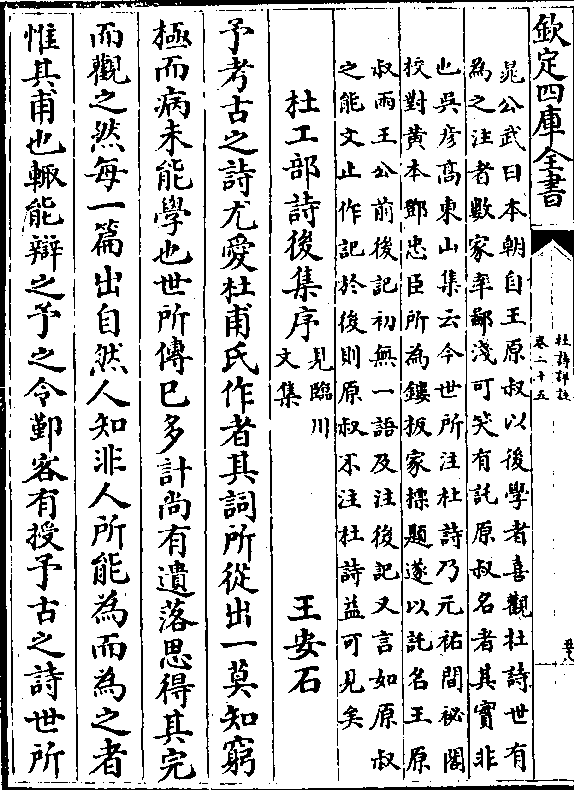 欽定四庫全書
杜詩詳註
卷二十五
晁公武曰本朝自王原叔以後學者喜觀杜詩世有
為之注者數家率鄙淺可笑有託原叔名者其實非
也吳彥高東山集云今世所注杜詩乃元祐間祕閣
校對黃本鄧忠臣所為鏤板家標題遂以託名王原
叔兩王公前後記初無一語及注後記又言如原叔
之能文止作記於後則原叔不注杜詩益可見矣
杜工部詩後集序見臨川文集 王安石
予考古之詩尤愛杜甫氏作者其詞所從出一莫知窮
極而病未能學也世所傳已多計尚有遺落思得其完
而觀之然每一篇出自然人知非人所能為而為之者
惟其甫也輙能辯之予之令鄞客有授予古之詩世所